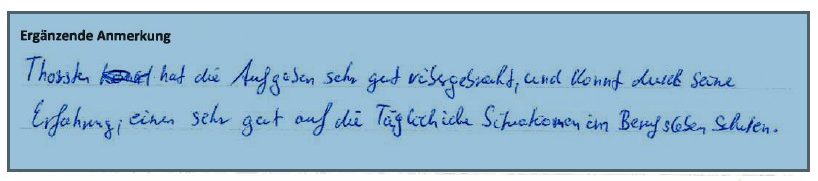 Ergänzende Anmerkung
Thorsten hat die Aufgaben sehr gut rübergebracht, und konnt durch seine
Erfahrung, einen sehr gut auf die Täglichiche Situationen im Berufsleben